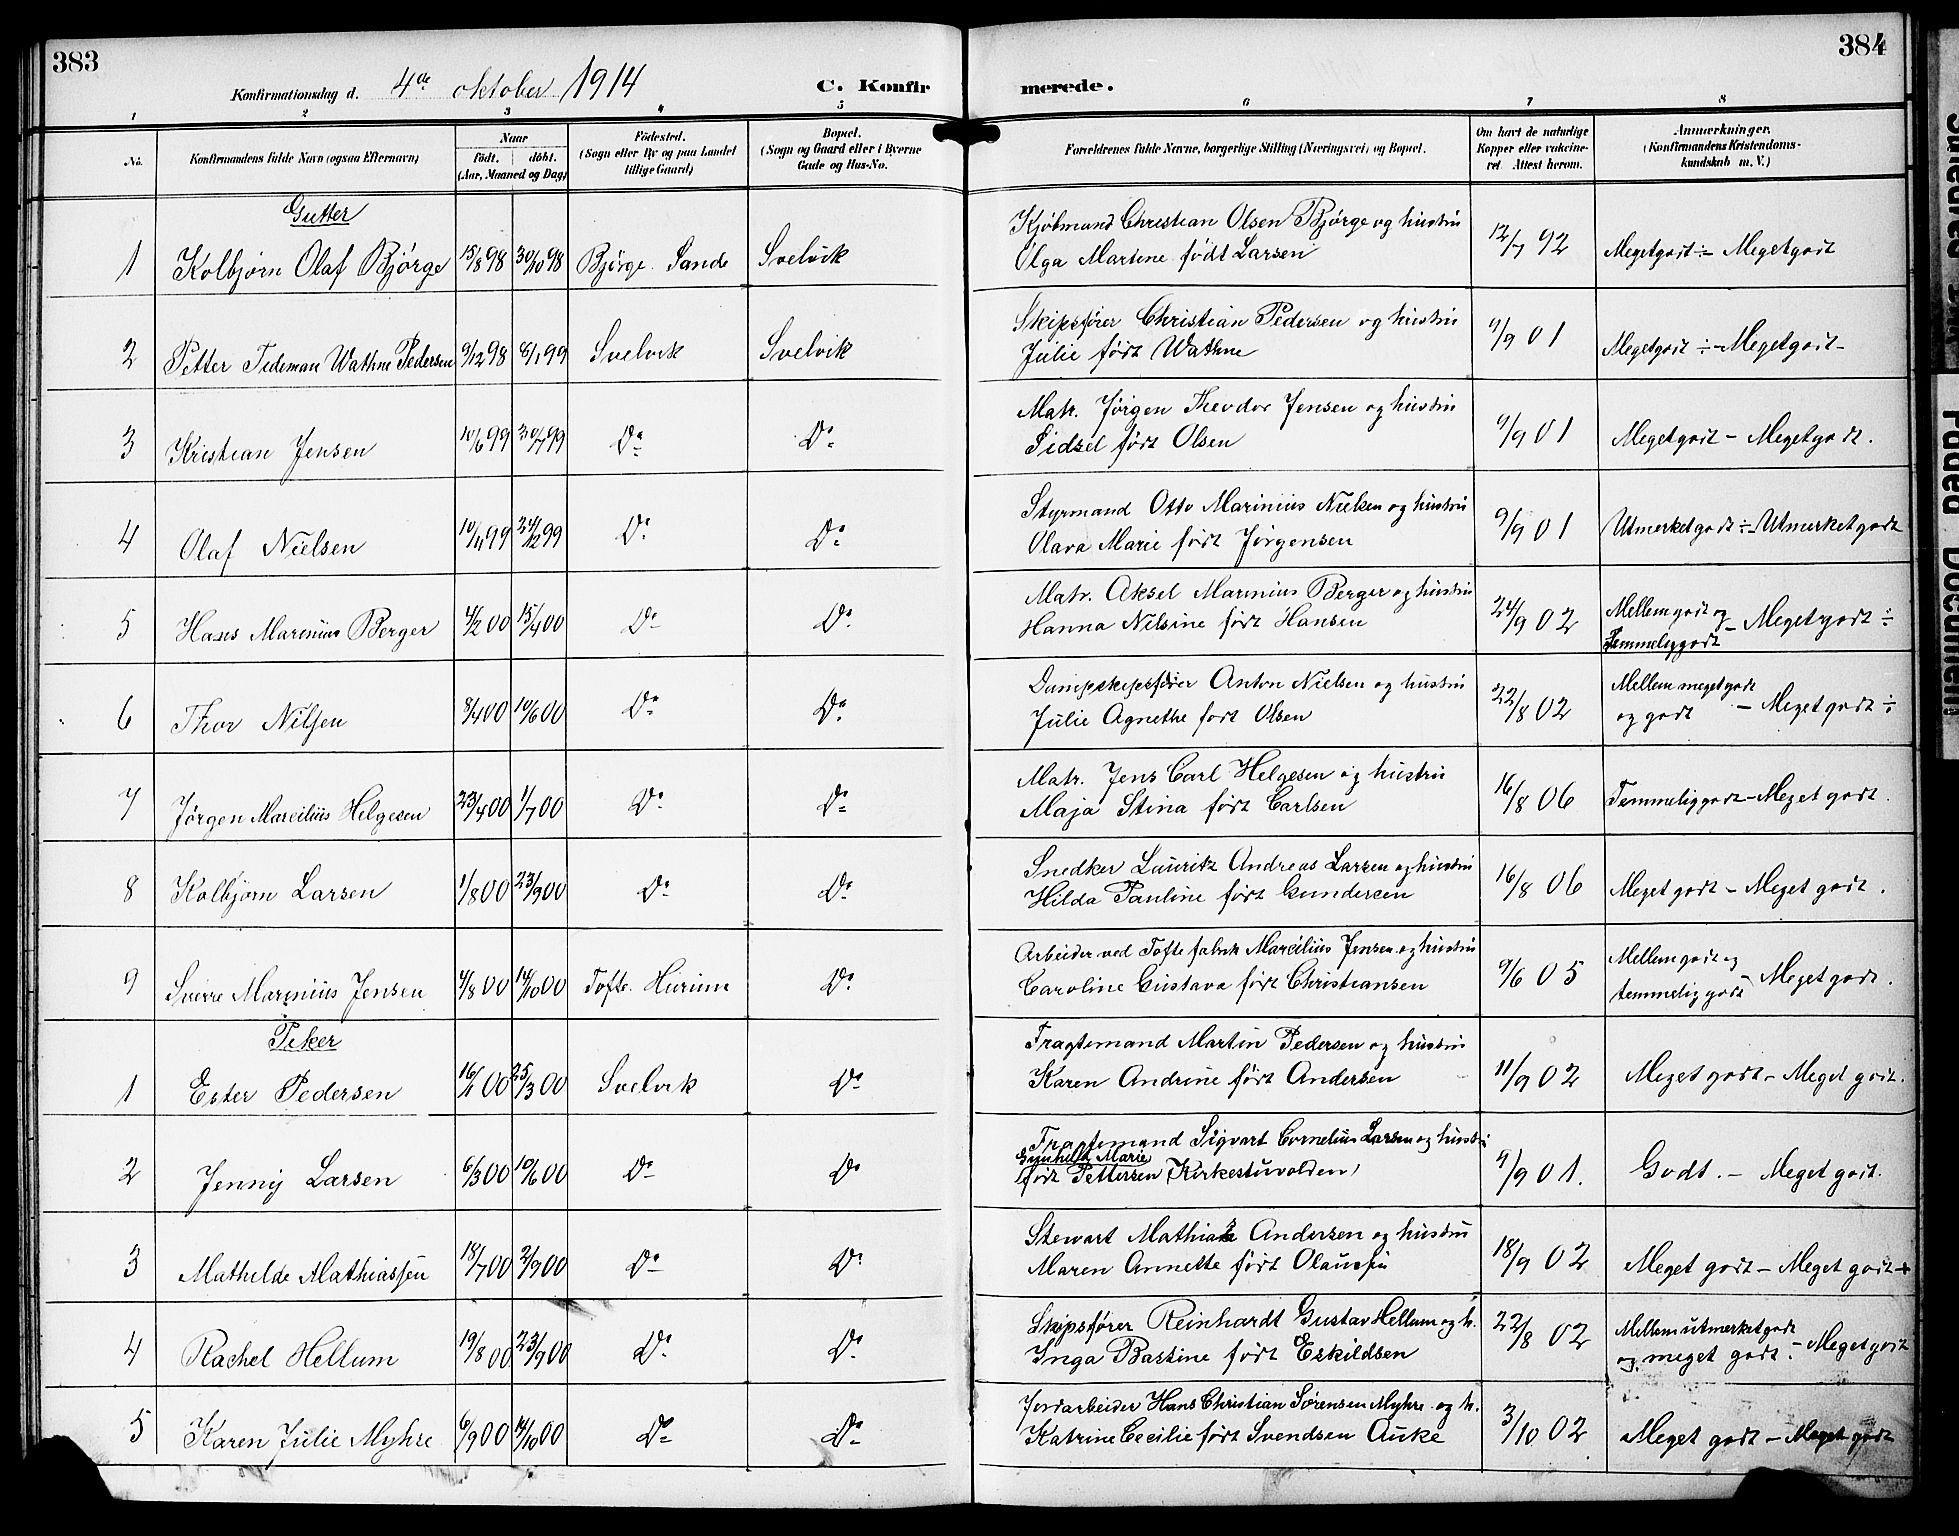 383
384
Konfirmationsdag d. 4de oktober 1914
C. Konfirmerede.
1 2 3 4 5 6 7 8
No. | Konfirmandens fulde Navn (ogsaa Efternavn) | Naar födt. döbt. (Aar, Maaned og Dag) | Födested. (Sogn eller By og paa Landet tillige Gaard) | Bopæl. (Sogn og Gaard eller i Byerne Gade og Hus-No. | Forældrenes fulde Navne, borgerlige Stilling (Næringsvei) og Bopæl. | Om havt de naturlige Kopper eller vakcineret. Attest herom. | Anmærkninger. (Konfirmandens Kristendomskundskab m. V.)
Gutter
1 | Kolbjørn Olaf Bjørge | 15/8 98 | 30/10 98 | Bjørge. Sande | Svelvik | Kjøbmand Christian Olsen Bjørge og hustru Olga Martine født Larsen | 12/7 92 | Megetgodt ÷ Megetgodt
2 | Petter Tideman Wathne Pedersen | 9/12 98 | 8/1 99 | Svelvik | Svelvik | Skipsfører Christian Pedersen og hustru Julie født Wathne | 9/9 01 | Megetgodt ÷ Megetgodt-
3 | Kristian Jensen | 10/6 99 | 30/7 99 | Do | Do | Matr. Jørgen Theodor Jensen og hustru Sidsel født Olsen | 9/9 01 | Megetgodt - Megetgodt.
4 | Olaf Nielsen | 10/11 99 | 24/12 99 | Do | Do | Styrmand Otto Marinius Nielsen og hustru Olava Marie født Jørgensen | 9/9 01 | Utmerketgodt ÷ Utmerketgodt
5 | Hans Marinius Berger | 4/2 00 | 15/4 00 | Do | Do | Matr. Aksel Marinius Berger og hustru Hanna Nilsine født Hansen | 24/9 02 | Mellem godt og Temmeliggodt - Megetgodt ÷
6 | Thor Nilsen | 8/4 00 | 10/6 00 | Do | Do | Dampskipsfører Anton Nielsen og hustru Julie Agnethe født Olsen | 22/8 02 | Mellem megetgodt og godt - Megetgodt ÷
7 | Jørgen Marcilius Helgesen | 23/4 00 | 1/7 00 | Do | Do | Matr. Jens Carl Helgesen og hustru Maja Stina født Carlsen | 16/8 06 | Temmeliggodt - Meget godt.
8 | Kolbjørn Larsen | 1/8 00 | 23/9 00 | Do | Do | Snedker Lauritz Andreas Larsen og hustru Hilda Pauline født Gundersen | 16/8 06 | Meget godt - Meget godt.
9 | Sverre Marinius Jensen | 4/8 00 | 14/10 00 | Tofte. Hurum | Do | Arbeider ved Tofte fabrik Marcilius Jensen og hustru Caroline Gustava født Christiansen | 9/6 05 | Mellem godt og temmelig godt - Megetgodt.
Piker
1 | Ester Pedersen | 16/1 00 | 25/3 00 | Svelvik | Do | Fragtemand Martin Pedersen og hustru Karen Andrine født Andersen | 11/9 02 | Meget godt - Meget godt.
2 | Jenny Larsen | 6/3 00 | 10/6 00 | Do | Do | Fragtemand Sigvart Cornelius Larsen og hustru Gunhild Marie født Pettersen (Kirkestuvolden) | 4/9 01. | Godt. - Meget godt.
3 | Mathilde Mathiassen | 18/7 00 | 2/9 00 | Do | Do | Stewart Mathias Andersen og hustru Maren Annette født Olaussen | 18/9 02 | Meget godt - Meget godt +
4 | Rachel Hellum | 19/8 00 | 23/9 00 | Do | Do | Skipsfører Reinhardt Gustav Hellum og h. Inga Bastine født Eskildsen | 22/8 02 | Mellem utmerket godt og meget godt. - Megetgodt
5 | Karen Julie Myhre | 6/9 00 | 14/10 00 | Do | Do | Jordarbeider Hans Christian Sørensen Myhre og h. Katrine Cecilie født Svendsen Auke | 3/10 02 | Meget godt - Meget godt